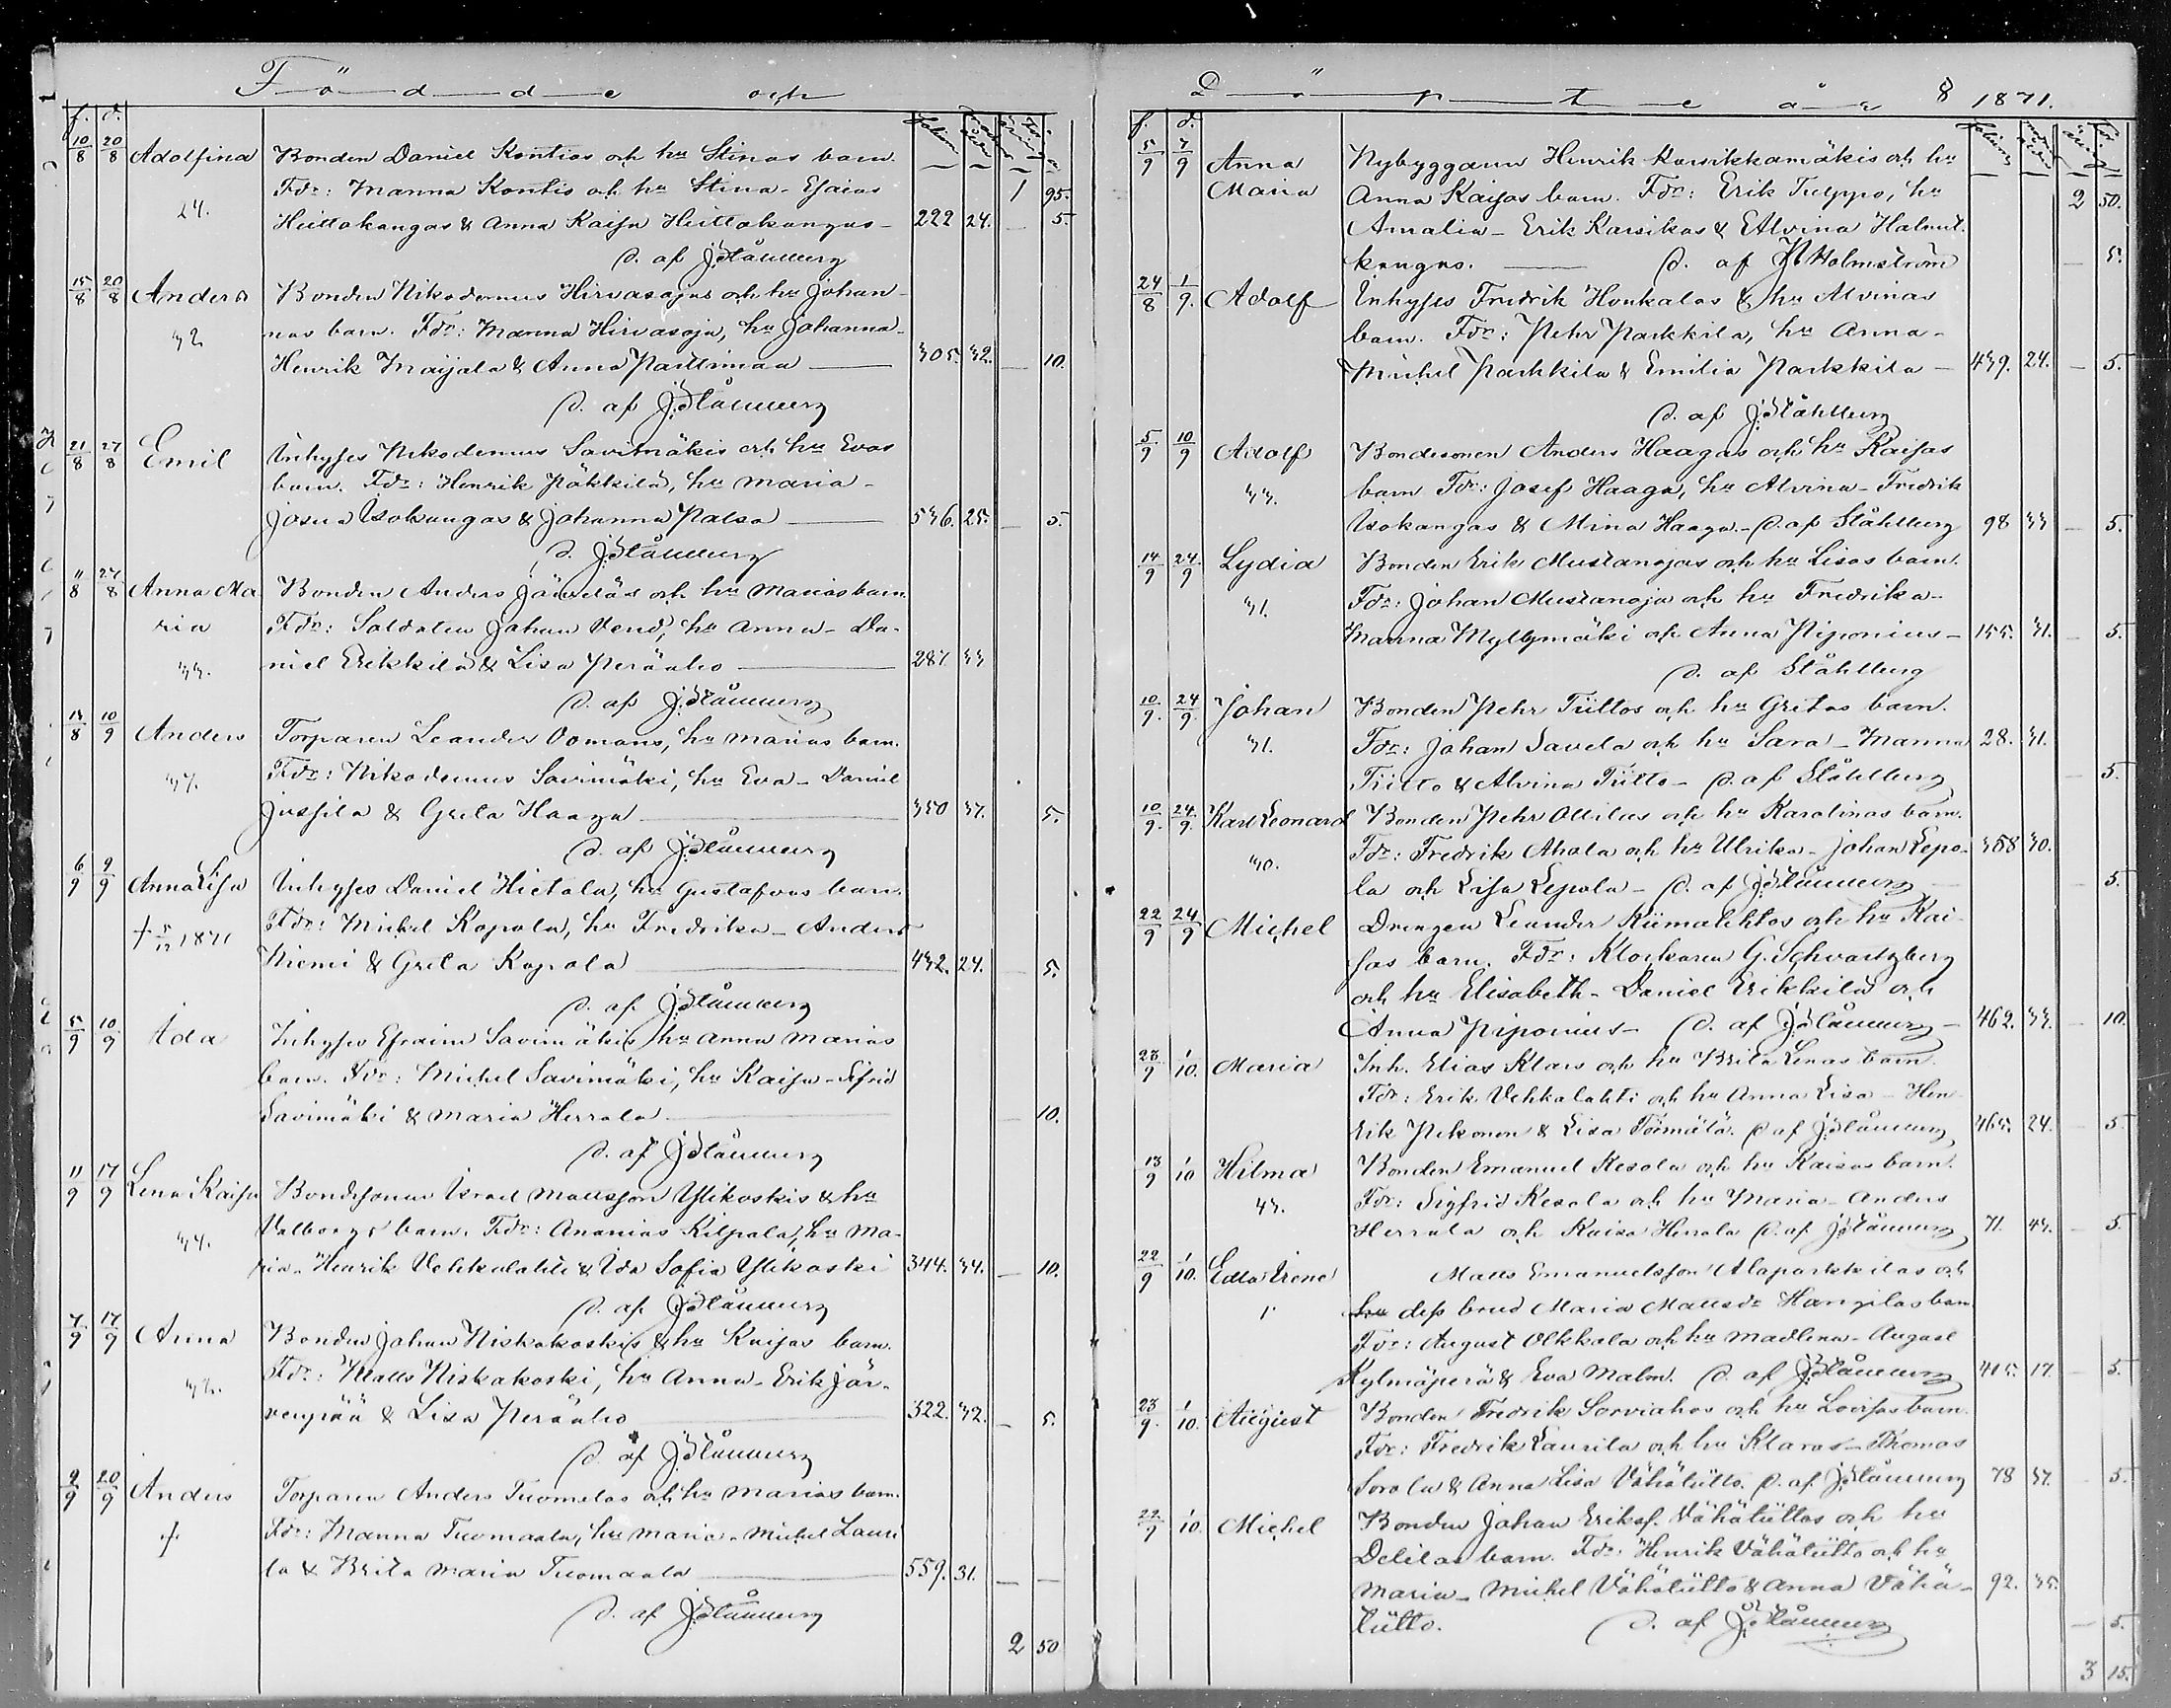 Födde och
f. d. folium
10/8 20/8 Adolfina Bonden Daniel Kontios och hu Stinas barn.
Fdr: Manna Kontio och hu Stina - Esaias 1 95.
24. Huttokangas & Anna Kaisa Huttokangas - 222 24. — 5.
D. af J. Ståhlberg
15/8 20/8 Anders Bonden Nikodemus Hirvasojas och hu Johan-
32 nas barn. Fdr: Manna Hirvasoja, hu Johanna -
Henrik Maijala & Anna Partimaa — 305. 32. — 10.
D. af J. Ståhlberg
21/8 27/8 Emil Inhyses Nikodemus Savimäkis och hu Evas
barn. Fdr: Henrik Päkkilä, hu Maria -
Josua Isokangas & Johanna Palsa — 536. 25. — 5.
D. J. Ståhlberg
11/8 27/8 Anna Ma Bonden Anders Järveläs och hu Marias barn
ria Fdr: Soldaten Johan Vend, hu Anna - Da-
33. niel Erikkilä & Lisa Peräaho — 287 33
D. af J. Ståhlberg
13/8 10/9 Anders Torparen Leander Oomans, hu Marias barn.
37. Fdr: Nikodemus Savimäki, hu Eva - Daniel
Jussila & Greta Haaga — 350 37. 5.
D. af J. Ståhlberg
6/9 9/9 Anna Lisa Inhyses Daniel Hietala, hu Gustafvas barn.
† 5/12 1871 Fdr: Michel Kopola, hu Fredrika - Anders
Niemi & Greta Kopola — 432. 24. — 5.
D. af J. Ståhlberg
5/9 10/9 Ada Inhyses Efraim Savimäkis hu Anna Marias
barn. Fdr: Michel Savimäki, hu Kaisa - Sifrid
Savimäki & Maria Herrala — 10.
D. af J. Ståhlberg
11/9 17/9 Lena Kaisa Bondesonen Israel Mattsson Ylikoskis & hu
34. Valborgs barn. Fdr: Ananias Kilpala, hu Ma-
ria - Henrik Vehkalahti & Ida Sofia Ylikoski 344. 34. — 10.
D. af J. Ståhlberg
7/9 17/9 Anna Bonden Johan Niskakoskis & hu Kaisas barn.
32. Fdr: Matts Niskakoski, hu Anna - Erik Jär-
venpää & Lisa Peräaho — 322. 32. — 5.
D. af J. Ståhlberg
9/9 20/9 Anders Torparen Anders Tuomelas och hu Marias barn.
f. Fdr: Manna Tuomaala, hu Maria - Michel Lauri
la & Brita Maria Tuomaala — 559. 31. — —
D. af J. Ståhlberg
2 50
Döpte år 8 1871.
f. d. folium
5/9 7/9 Anna Nybyggaren Henrik Karsikkamäkis och hu
Maria Anna Kaisas barn. Fdr: Erik Tulppo, hu 2 50.
Amalia - Erik Karsikas & Alvina Halmet-
kangas. — D. af Holmström — 5.
24/8 1/9. Adolf Inhyses Fredrik Honkalas & hu Alvinas
barn. Fdr: Pehr Parkkila, hu Anna -
Michel Parkkila & Emilia Parkkila — 439. 24. — 5.
D. af J. Ståhlberg
5/9 10/9 Adolf Bondesonen Anders Haagas och hu Kaisas
33. barn Fdr: Josef Haaga, hu Alvina - Fredrik
Isokangas & Mina Haaga. - D. af Ståhlberg 98 33 — 5.
14/9 24/9 Lydia Bonden Erik Mustanojas och hu Lisas barn.
31. Fdr: Johan Mustanoja och hu Fredrika -
Manna Myllymäki och Anna Piponius - 155. 31. — 5.
D. af Ståhlberg
10/9. 24/9. Johan Bonden Pehr Tiittos och hu Gretas barn.
31. Fdr: Johan Savela och hu Sara - Manna 28. 31.
Tiitto & Alvina Tiitto - D. af Ståhlberg — 5.
10/9. 24/9. Karl Leonard Bonden Pehr Ollilas och hu Karolinas barn.
30. Fdr: Fredrik Ahola och hu Ulrika - Johan Lepo- 358 30.
la och Lisa Lepola - D. af J. Ståhlberg — 5.
22/9 24/9 Michel Drengen Leander Kiimalehtos och hu Kai-
sas barn. Fdr: Klockaren G. Schvartzberg
och hu Elisabeth - Daniel Erikkilä och
Anna Piponius - D. af J. Ståhlberg - 462. 33. — 10.
23/9 1/10. Maria Inh. Elias Klars och hu Brita Lenas barn.
Fdr: Erik Vehkalahti och hu Anna Lisa - Hen
rik Pekonen & Lisa Törmälä. D. af J. Ståhlberg 465. 24. — 5.
13/9 1/10 Hilma Bonden Emanuel Kesola och hu Kaisas barn.
43. Fdr: Sigfrid Kesola och hu Maria - Anders
Herrala och Kaisa Herrala D. af J. Ståhlberg 71. 43. — 5.
22/9 1/10. Edla Irene Matts Emanuelsson Alaparkkilas och
1 hu dess brud Maria Mattsdr Hangilas barn
Fdr: August Olkkola och hu Madlena - August
Kylmäperä & Eva Malm. D. af J. Ståhlberg 415. 17. — 5.
23/9. 1/10. August Bonden Fredrik Sorviahos och hu Lovisas barn.
Fdr: Fredrik Laurila och hu Klaras - Thomas
Sorola & Anna Lisa Vähätiitto. D. af J. Ståhlberg 78 37. 5.
22/9 1/10. Michel Bonden Johan Eriks. Vähätiittos och hu
Delilas barn. Fdr: Henrik Vähätiitto och hu
Maria - Michel Vähätiitto & Anna Vähä- 92. 35.
tiitto. D. af J. Ståhlberg — 5.
3 15.